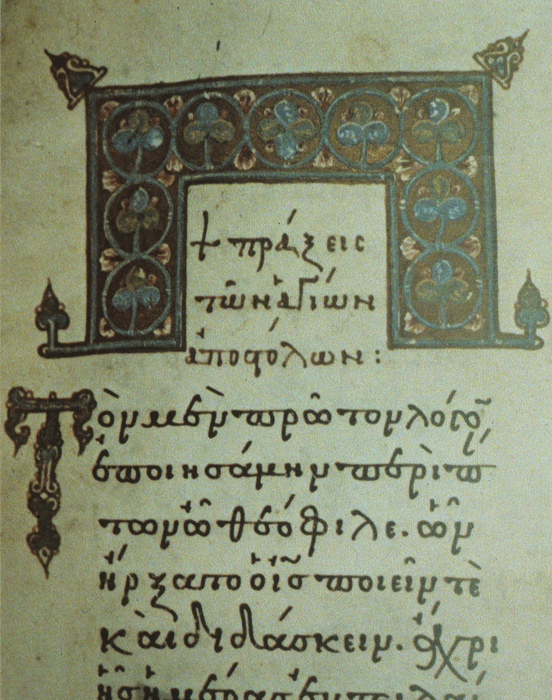 + πράξεις
τῶν ἁγίων
ἀποϛόλων :
Τὸν μὲν πρῶτον λόγο
ἐποιησάμην περὶ πά
των ὦ θεόφιλε. ὧν
ἤρξατο ὁ ις ποιεῖν τὲ
καὶ διδάσκειν. ἄχρι
ἧς ἡμέρας ἐντειλά